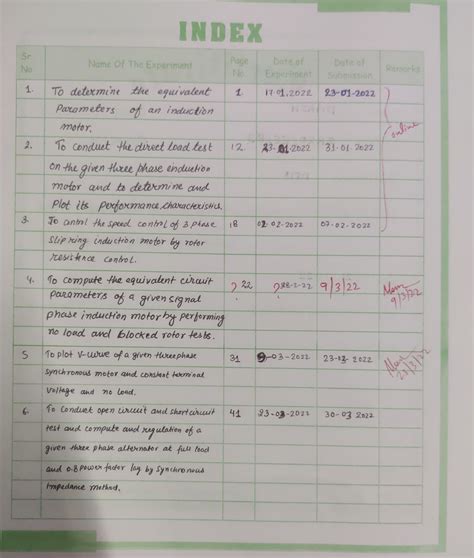 INDEX
Sr. No
Name Of The Experiment
Page No.
Date of Experiment
Date of Submission
Remarks
1. To determine the equivalent 1 17.01.2022 23-01-2022
Parameters of an induction
motor.
online
2. To conduct the direct load test 12 23.01-2022 31.01.2022
on the given three phase enduction
motor and to determine and
Plot its performance, characteristics.
3. To cntrl the speed control of 3 phase 18 02-02-2022 07-02-2022
slip ring induction motor by rotor
resistence control.
4. To compute the equivalent circuit ? 22 ? 28-2-22 9/3/22
parameters of a given signal 9/3/22
phase induction motor by performing
no load and blocked rotor tests.
5 To plot V-curve of a given threephase 31 9-03-2022 23-03-2022
synchronous motor and constent terminal
voltage and no load.
6. To Conduct open circuit and shortcircuit 41 23-03-2022 30-03 2022
test and compute and regulation of a
given three phase alternator at full load
and 0.8 power factor lag by synchronous
Impedance method.